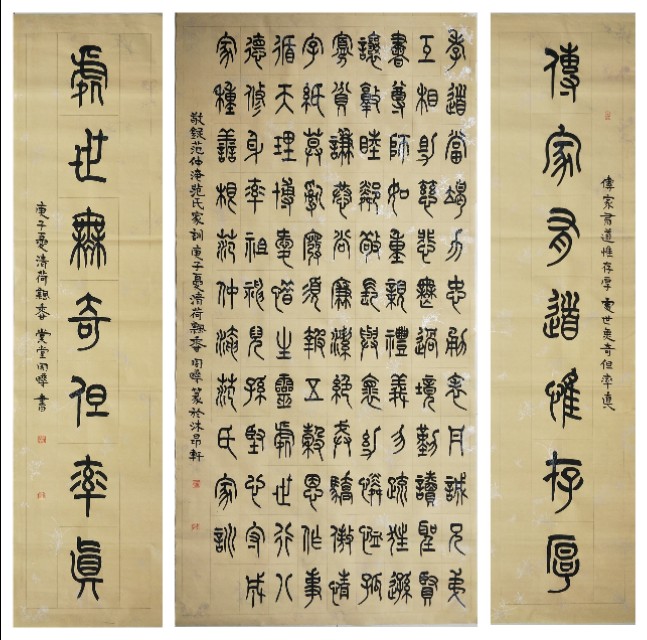 傳家有道惟存厚
傳家有道惟存厚 處世無奇但率真
孝道當竭力忠勇表丹誠兄弟
互相助慈悲無過境勤讀聖賢
書尊師如重親禮義勿疏狂遜
讓敦睦鄰敬長與懷幼憐恤孤
寡貧謙恭尚廉潔絕戒驕傲情
字紙莫亂廢須報五穀恩作事
循天理博愛惜生靈處世行八
德修身率祖神兒孫堅心守成
家種善根范仲淹范氏家訓
敬錄范仲淹范氏家訓庚子夏清荷飄香篆於沐昂軒
處世無奇但率真
庚子夏清荷飄香堂書